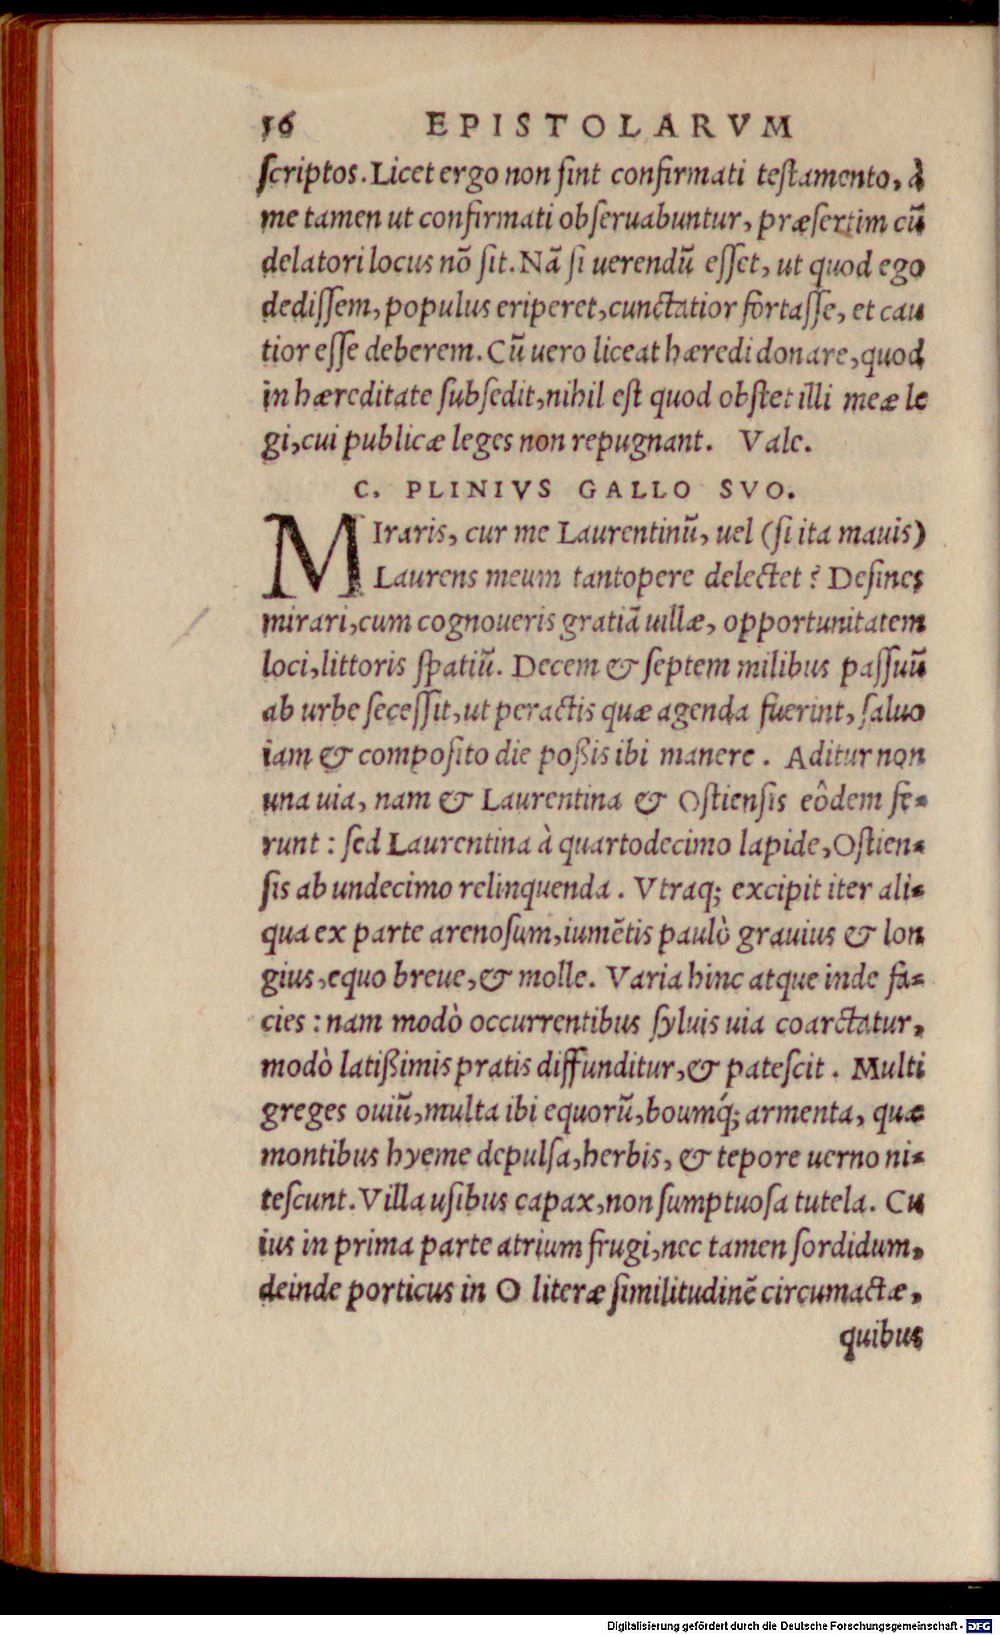 56 EPISTOLARVM
scriptos. Licet ergo non sint confirmati testamento, à
me tamen ut confirmati obseruabuntur, præsertim cũ
delatori locus nõ sit. Nã si uerendũ esset, ut quod ego
dedissem, populus eriperet, cunctatior fortasse, et cau
tior esse deberem. Cũ uero liceat hæredi donare, quod
in hæreditate subsedit, nihil est quod obstet illi meæ le
gi, cui publicæ leges non repugnant. Vale.
C. PLINIVS GALLO SVO.
MIraris, cur me Laurentinũ, uel (si ita mauis)
Laurens meum tantopere delectet? Desines
mirari, cum cognoueris gratiã uillæ, opportunitatem
loci, littoris spatiũ. Decem & septem milibus passuũ
ab urbe secessit, ut peractis quæ agenda fuerint, saluo
iam & composito die poßis ibi manere. Aditur non
una uia, nam & Laurentina & Ostiensis eôdem fe-
runt: sed Laurentina à quartodecimo lapide, Ostien-
sis ab undecimo relinquenda. Vtraq; excipit iter ali-
qua ex parte arenosum, iumẽtis paulò grauius & lon
gius, equo breue, & molle. Varia hinc atque inde fa-
cies: nam modò occurrentibus syluis uia coarctatur,
modò latißimis pratis diffunditur, & patescit. Multi
greges ouiũ, multa ibi equorũ, boumq́; armenta, quæ
montibus hyeme depulsa, herbis, & tepore uerno ni-
tescunt. Villa usibus capax, non sumptuosa tutela. Cu
ius in prima parte atrium frugi, nec tamen sordidum,
deinde porticus in O literæ similitudinẽ circumactæ,
quibus
Digitalisierung gefördert durch die Deutsche Forschungsgemeinschaft - DFG